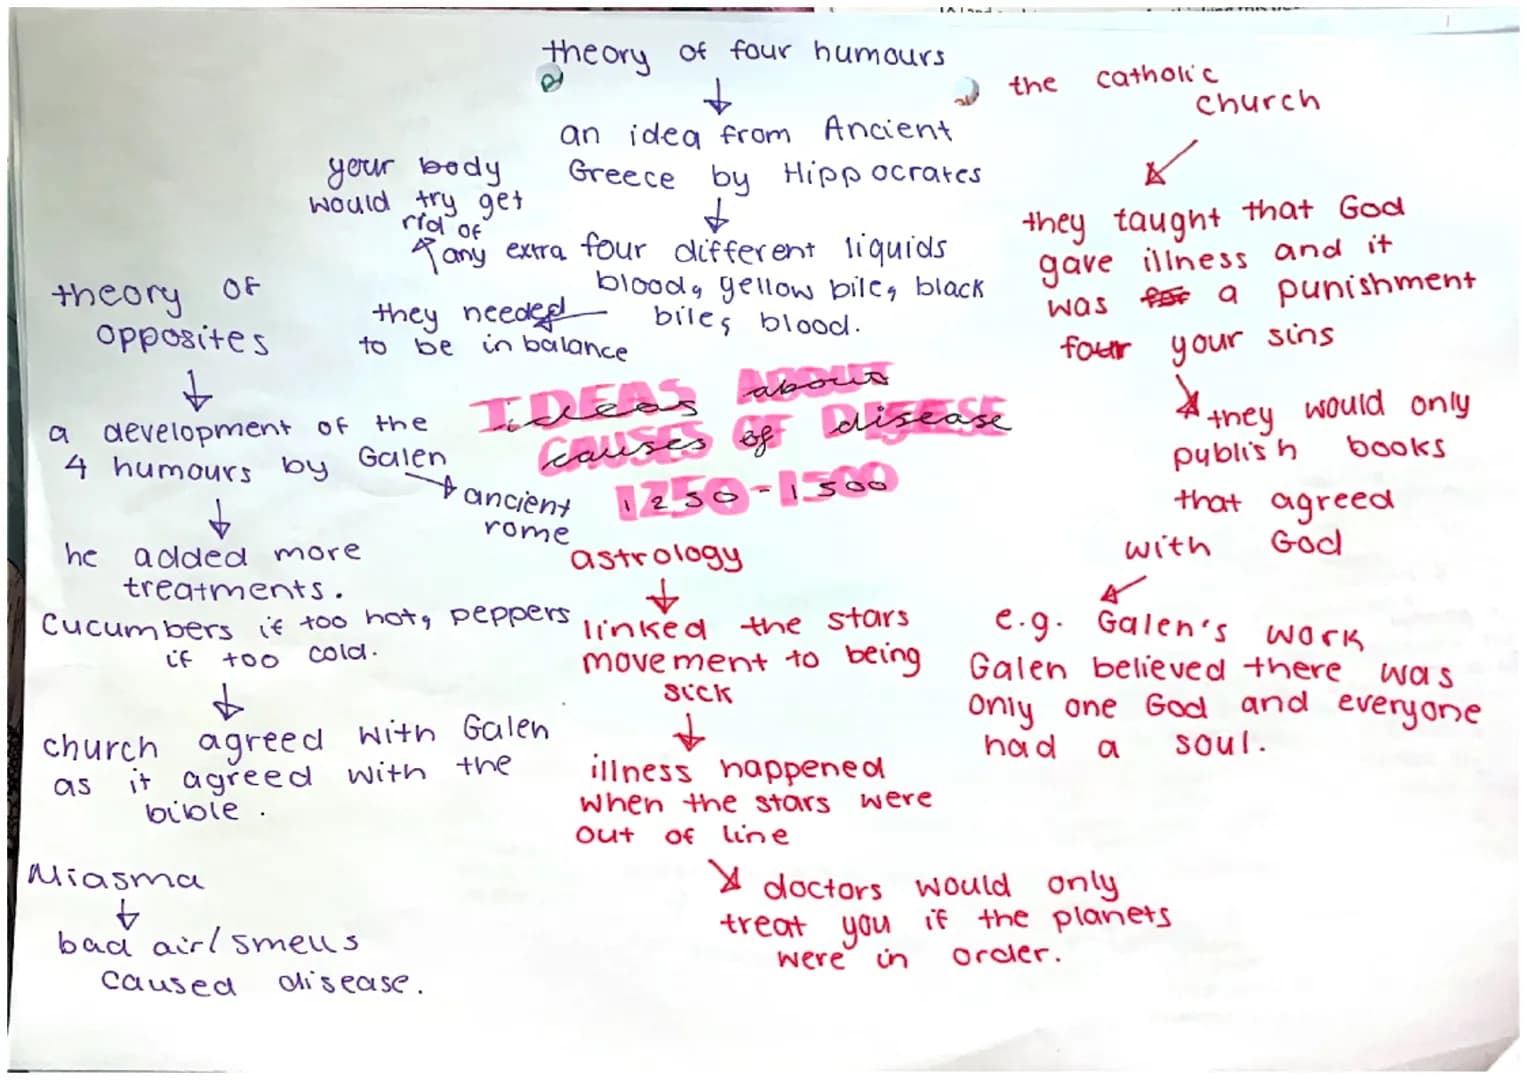 theory of four humours
an idea from Ancient
Greece by Hippocrates
four different liquids
blood, yellow bile, black
bile, blood.
your body
would try get
rid of
any extra
they needed
to be in balance
the catholic
church
they taught that God
gave illness and it
was a punishment
four your sins
they would only
publish books
that agreed
with God
e.g. Galen's work
Galen believed there was
only one God and everyone
had a soul.
theory of
opposites
a development of the
4 humours by Galen
ancient
rome
he added more
treatments.
cucumbers if too hot, peppers
if too cold.
church agreed with Galen
as it agreed with the
bible.
Miasma
bad air/smells
caused disease.
IDEAS ABOUT
ideas about
CAUSES OF DISEASE
causes of disease
1250-1500
1250-1500
astrology
linked the stars
movement to being
sick
illness happened
when the stars were
out of line
doctors would only
treat you if the planets
were in order.